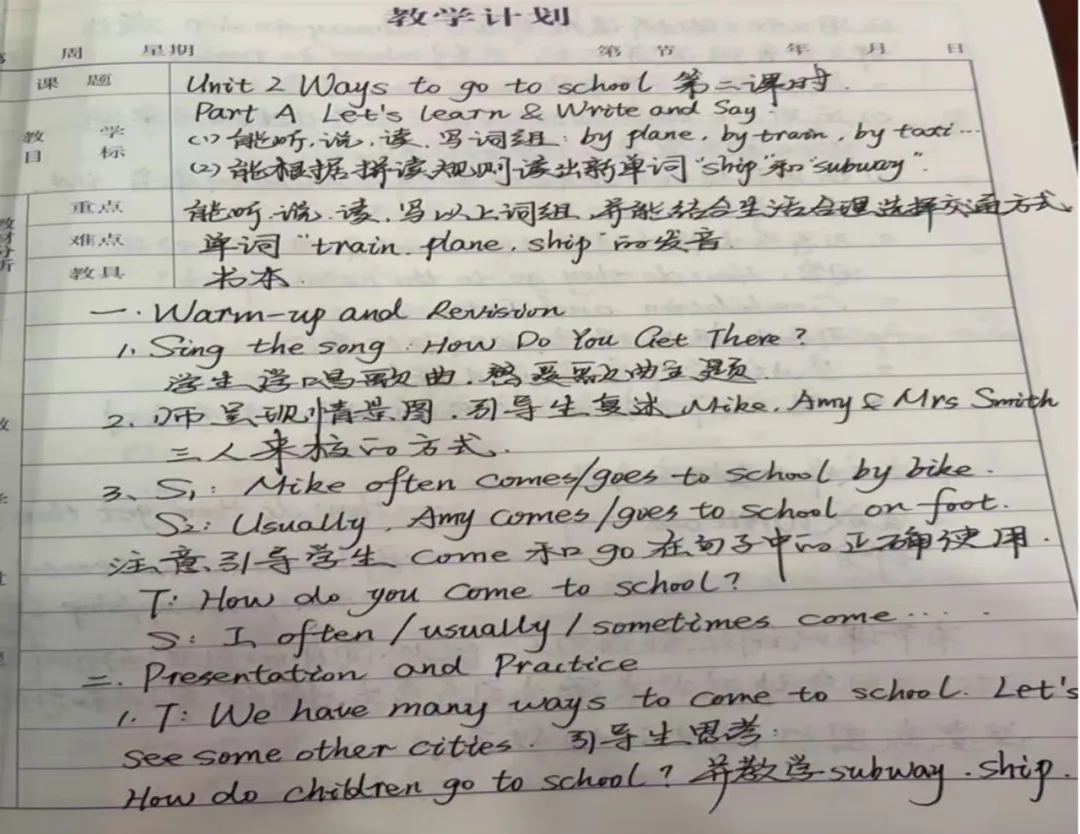 教学计划
周 星期 第 节 年 月 日
课题 Unit 2 Ways to go to school 第二课时.
Part A Let's learn & Write and Say.
教学目标 (1) 能听.说.读.写词组: by plane, by train, by taxi...
(2) 能根据拼读规则读出新单词"ship"和"subway".
重点 能听.说.读.写以上词组,并能结合生活合理选择交通方式
难点 单词"train, plane, ship"的发音.
教具 书本.
一. Warm-up and Revision
1. Sing the song: How Do You Get There?
学生学唱歌曲.感受歌曲主题.
2. 师呈现情景图.引导生复述 Mike, Amy & Mrs Smith
三人来校的方式.
3. S1: Mike often comes/goes to school by bike.
S2: Usually, Amy comes/goes to school on foot.
注意引导学生 come 和 go 在句子中的正确使用.
T: How do you come to school?
S: I often / usually / sometimes come......
二. Presentation and Practice
1. T: We have many ways to come to school. Let's
see some other cities. 引导生思考:
How do children go to school? 并教学subway.ship.